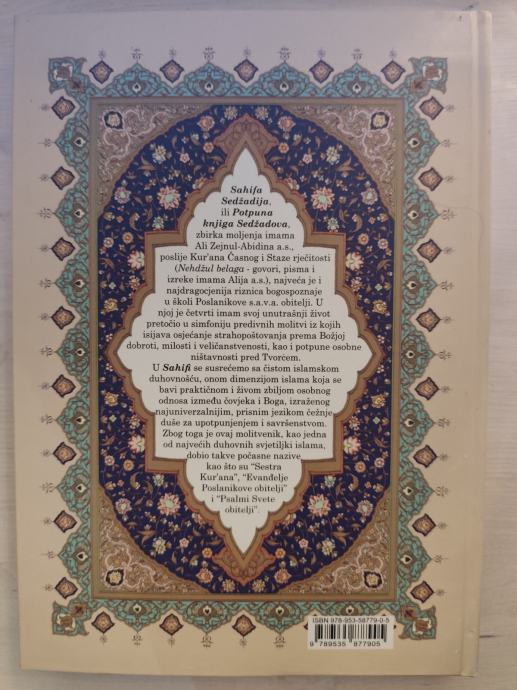 Sahifa
Sedžadija,
ili Potpuna
knjiga Sedžadova,
zbirka moljenja imama
Ali Zejnul-Abidina a.s.,
poslije Kur'ana Časnog i Staze rječitosti
(Nehdžul belaga - govori, pisma i
izreke imama Alija a.s.), najveća je i
najdragocjenija riznica bogospoznaje
u školi Poslanikove s.a.v.a. obitelji. U
njoj je četvrti imam svoj unutrašnji život
pretočio u simfoniju predivnih molitvi iz kojih
isijava osjećanje strahopoštovanja prema Božjoj
dobroti, milosti i veličanstvenosti, kao i potpune osobne
ništavnosti pred Tvorcem.
U Sahifi se susrećemo sa čistom islamskom
duhovnošću, onom dimenzijom islama koja se
bavi praktičnom i živom zbiljom osobnog
odnosa između čovjeka i Boga, izraženog
najuniverzalnijim, prisnim jezikom čežnje
duše za upotpunjenjem i savršenstvom.
Zbog toga je ovaj molitvenik, kao jedna
od najvećih duhovnih svjetiljki islama,
dobio takve počasne nazive
kao što su "Sestra
Kur'ana", "Evanđelje
Poslanikove obitelji"
i "Psalmi Svete
obitelji".
ISBN 978-953-58779-0-5
9 789535 877905